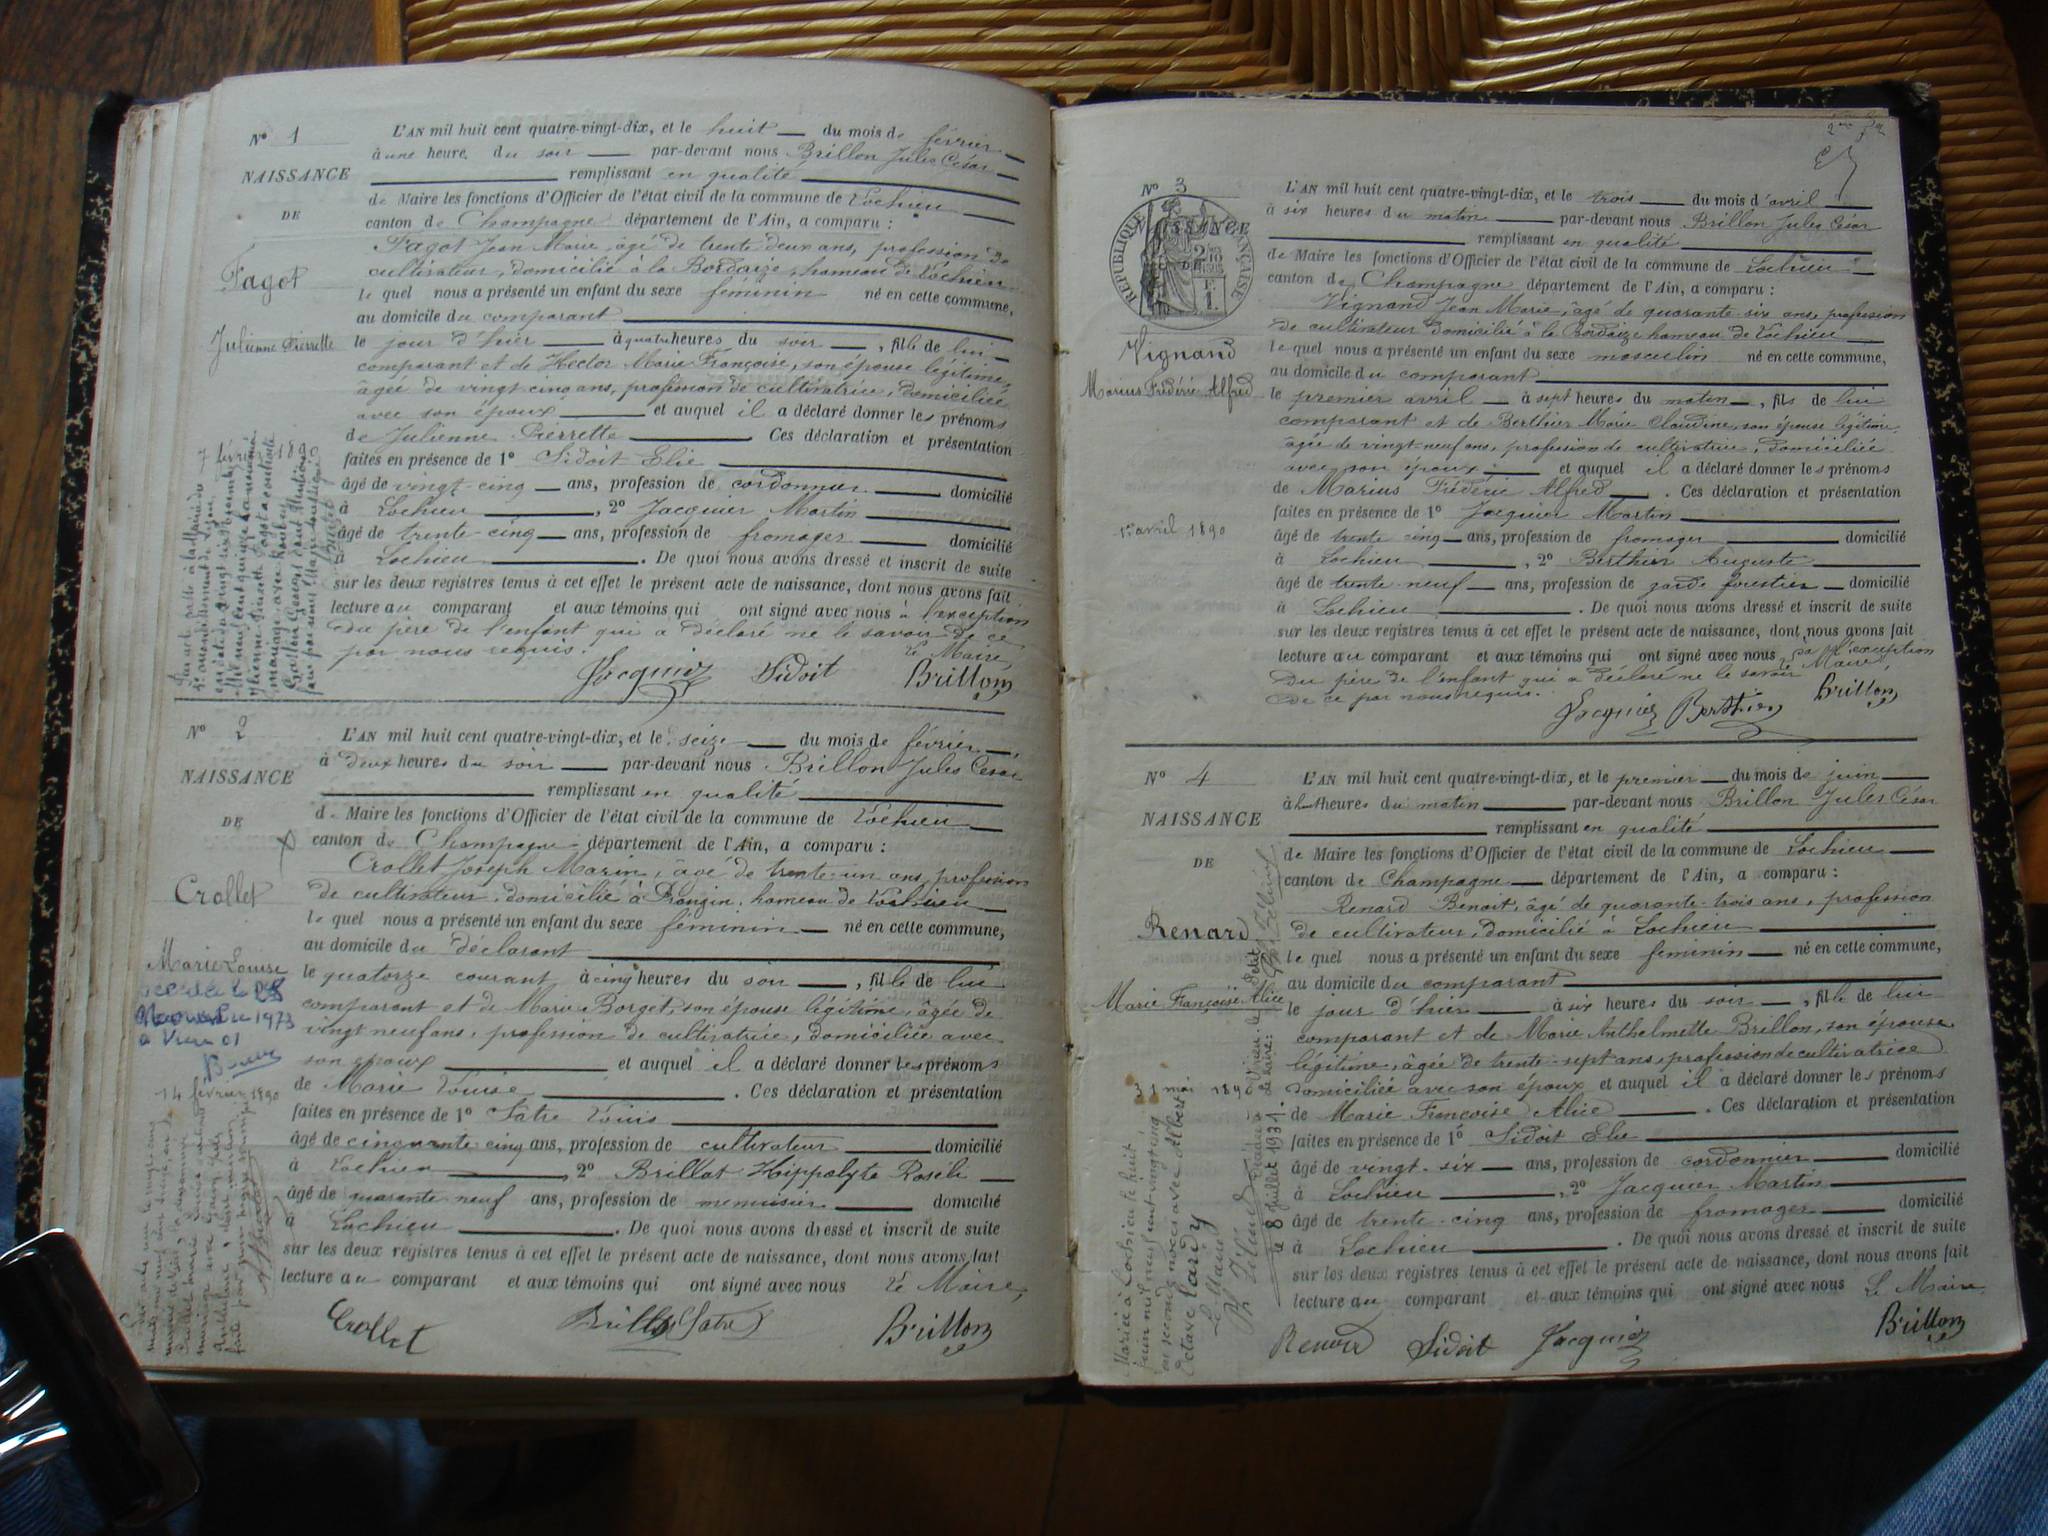 N° 1
NAISSANCE
DE
Fagot
Julienne Pierrette
7 février 1890
L'AN mil huit cent quatre-vingt-dix, et le huit du mois de février
à une heure du soir par-devant nous Brillon Jules César
remplissant en qualité
de Maire les fonctions d'Officier de l'état civil de la commune de Lochieu
canton de Champagne département de l'Ain, a comparu :
Fagot Jean Marie, âgé de trente deux ans, profession de
cultivateur, domicilié à la Bordaize, hameau de Lochieu
le quel nous a présenté un enfant du sexe féminin né en cette commune,
au domicile du comparant
le jour d'hier à quatre heures du soir, fille de lui
comparant et de Hector Marie Françoise, son épouse légitime,
âgée de vingt cinq ans, profession de cultivatrice, domiciliée
avec son époux et auquel il a déclaré donner les prénoms
de Julienne Pierrette Ces déclaration et présentation
faites en présence de 1° Sidoit Elie
âgé de vingt-cinq ans, profession de cordonnier domicilié
à Lochieu, 2° Jacquier Martin
âgé de trente-cinq ans, profession de fromager domicilié
à Lochieu. De quoi nous avons dressé et inscrit de suite
sur les deux registres tenus à cet effet le présent acte de naissance, dont nous avons fait
lecture au comparant et aux témoins qui ont signé avec nous à l'exception
du père de l'enfant qui a déclaré ne le savoir de ce
par nous requis. Le Maire,
Jacquier Sidoit Brillon
N° 2
NAISSANCE
DE
Crollet
Marie Louise
décédée le 28
Novembre 1973
à Virieu 01
14 février 1890
L'AN mil huit cent quatre-vingt-dix, et le seize du mois de février,
à deux heures du soir par-devant nous Brillon Jules César
remplissant en qualité
de Maire les fonctions d'Officier de l'état civil de la commune de Lochieu
canton de Champagne département de l'Ain, a comparu :
Crollet Joseph Marin, âgé de trente-un ans, profession
de cultivateur, domicilié à Rongin, hameau de Lochieu
le quel nous a présenté un enfant du sexe féminin né en cette commune,
au domicile du déclarant
le quatorze courant à cinq heures du soir, fille de lui
comparant et de Marie Borget, son épouse légitime, âgée de
vingt neuf ans, profession de cultivatrice, domiciliée avec
son époux et auquel il a déclaré donner les prénoms
de Marie Louise. Ces déclaration et présentation
faites en présence de 1° Satre Louis
âgé de cinquante-cinq ans, profession de cultivateur domicilié
à Lochieu, 2° Brillat Hippolyte Rosili
âgé de quarante neuf ans, profession de menuisier domicilié
à Lochieu. De quoi nous avons dressé et inscrit de suite
sur les deux registres tenus à cet effet le présent acte de naissance, dont nous avons fait
lecture au comparant et aux témoins qui ont signé avec nous Le Maire,
Crollet Brillat Satre Brillon
N° 3
NAISSANCE
RÉPUBLIQUE FRANÇAISE
Vignand
Marius Frédéric Alfred
1er avril 1890
L'AN mil huit cent quatre-vingt-dix, et le trois du mois d'avril
à six heures du matin par-devant nous Brillon Jules César
remplissant en qualité
de Maire les fonctions d'Officier de l'état civil de la commune de Lochieu
canton de Champagne département de l'Ain, a comparu :
Vignand Jean Marie, âgé de quarante-six ans, profession
de cultivateur domicilié à la Bordaize hameau de Lochieu
le quel nous a présenté un enfant du sexe masculin né en cette commune,
au domicile du comparant
le premier avril à sept heures du matin, fils de lui
comparant et de Berthier Marie Claudine, son épouse légitime,
âgée de vingt-neuf ans, profession de cultivatrice, domiciliée
avec son époux et auquel il a déclaré donner les prénoms
de Marius Frédéric Alfred. Ces déclaration et présentation
faites en présence de 1° Jacquier Martin
âgé de trente cinq ans, profession de fromager domicilié
à Lochieu, 2° Berthier Auguste
âgé de trente-neuf ans, profession de garde forestier domicilié
à Lochieu. De quoi nous avons dressé et inscrit de suite
sur les deux registres tenus à cet effet le présent acte de naissance, dont nous avons fait
lecture au comparant et aux témoins qui ont signé avec nous à l'exception
du père de l'enfant qui a déclaré ne le savoir Maire,
de ce par nous requis.
Jacquier Berthier Brillon
N° 4
NAISSANCE
DE
Renard
Marie Françoise Alice
31 mai 1890
Mariée à Lochieu le huit
juin mil neuf cent vingt cinq
en secondes noces avec Albert
Octave Lardy
Le Maire
L'AN mil huit cent quatre-vingt-dix, et le premier du mois de juin
à huit heures du matin par-devant nous Brillon Jules César
remplissant en qualité
de Maire les fonctions d'Officier de l'état civil de la commune de Lochieu
canton de Champagne département de l'Ain, a comparu :
Renard Benoit, âgé de quarante-trois ans, profession
de cultivateur, domicilié à Lochieu
le quel nous a présenté un enfant du sexe féminin né en cette commune,
au domicile du comparant
le jour d'hier à six heures du soir, fille de lui
comparant et de Marie Anthelmette Brillon, son épouse
légitime, âgée de trente-sept ans, profession de cultivatrice
domiciliée avec son époux et auquel il a déclaré donner les prénoms
de Marie Françoise Alice. Ces déclaration et présentation
faites en présence de 1° Sidoit Elie
âgé de vingt-six ans, profession de cordonnier domicilié
à Lochieu, 2° Jacquier Martin
âgé de trente-cinq ans, profession de fromager domicilié
à Lochieu. De quoi nous avons dressé et inscrit de suite
sur les deux registres tenus à cet effet le présent acte de naissance, dont nous avons fait
lecture au comparant et aux témoins qui ont signé avec nous Le Maire
Renard Sidoit Jacquier Brillon